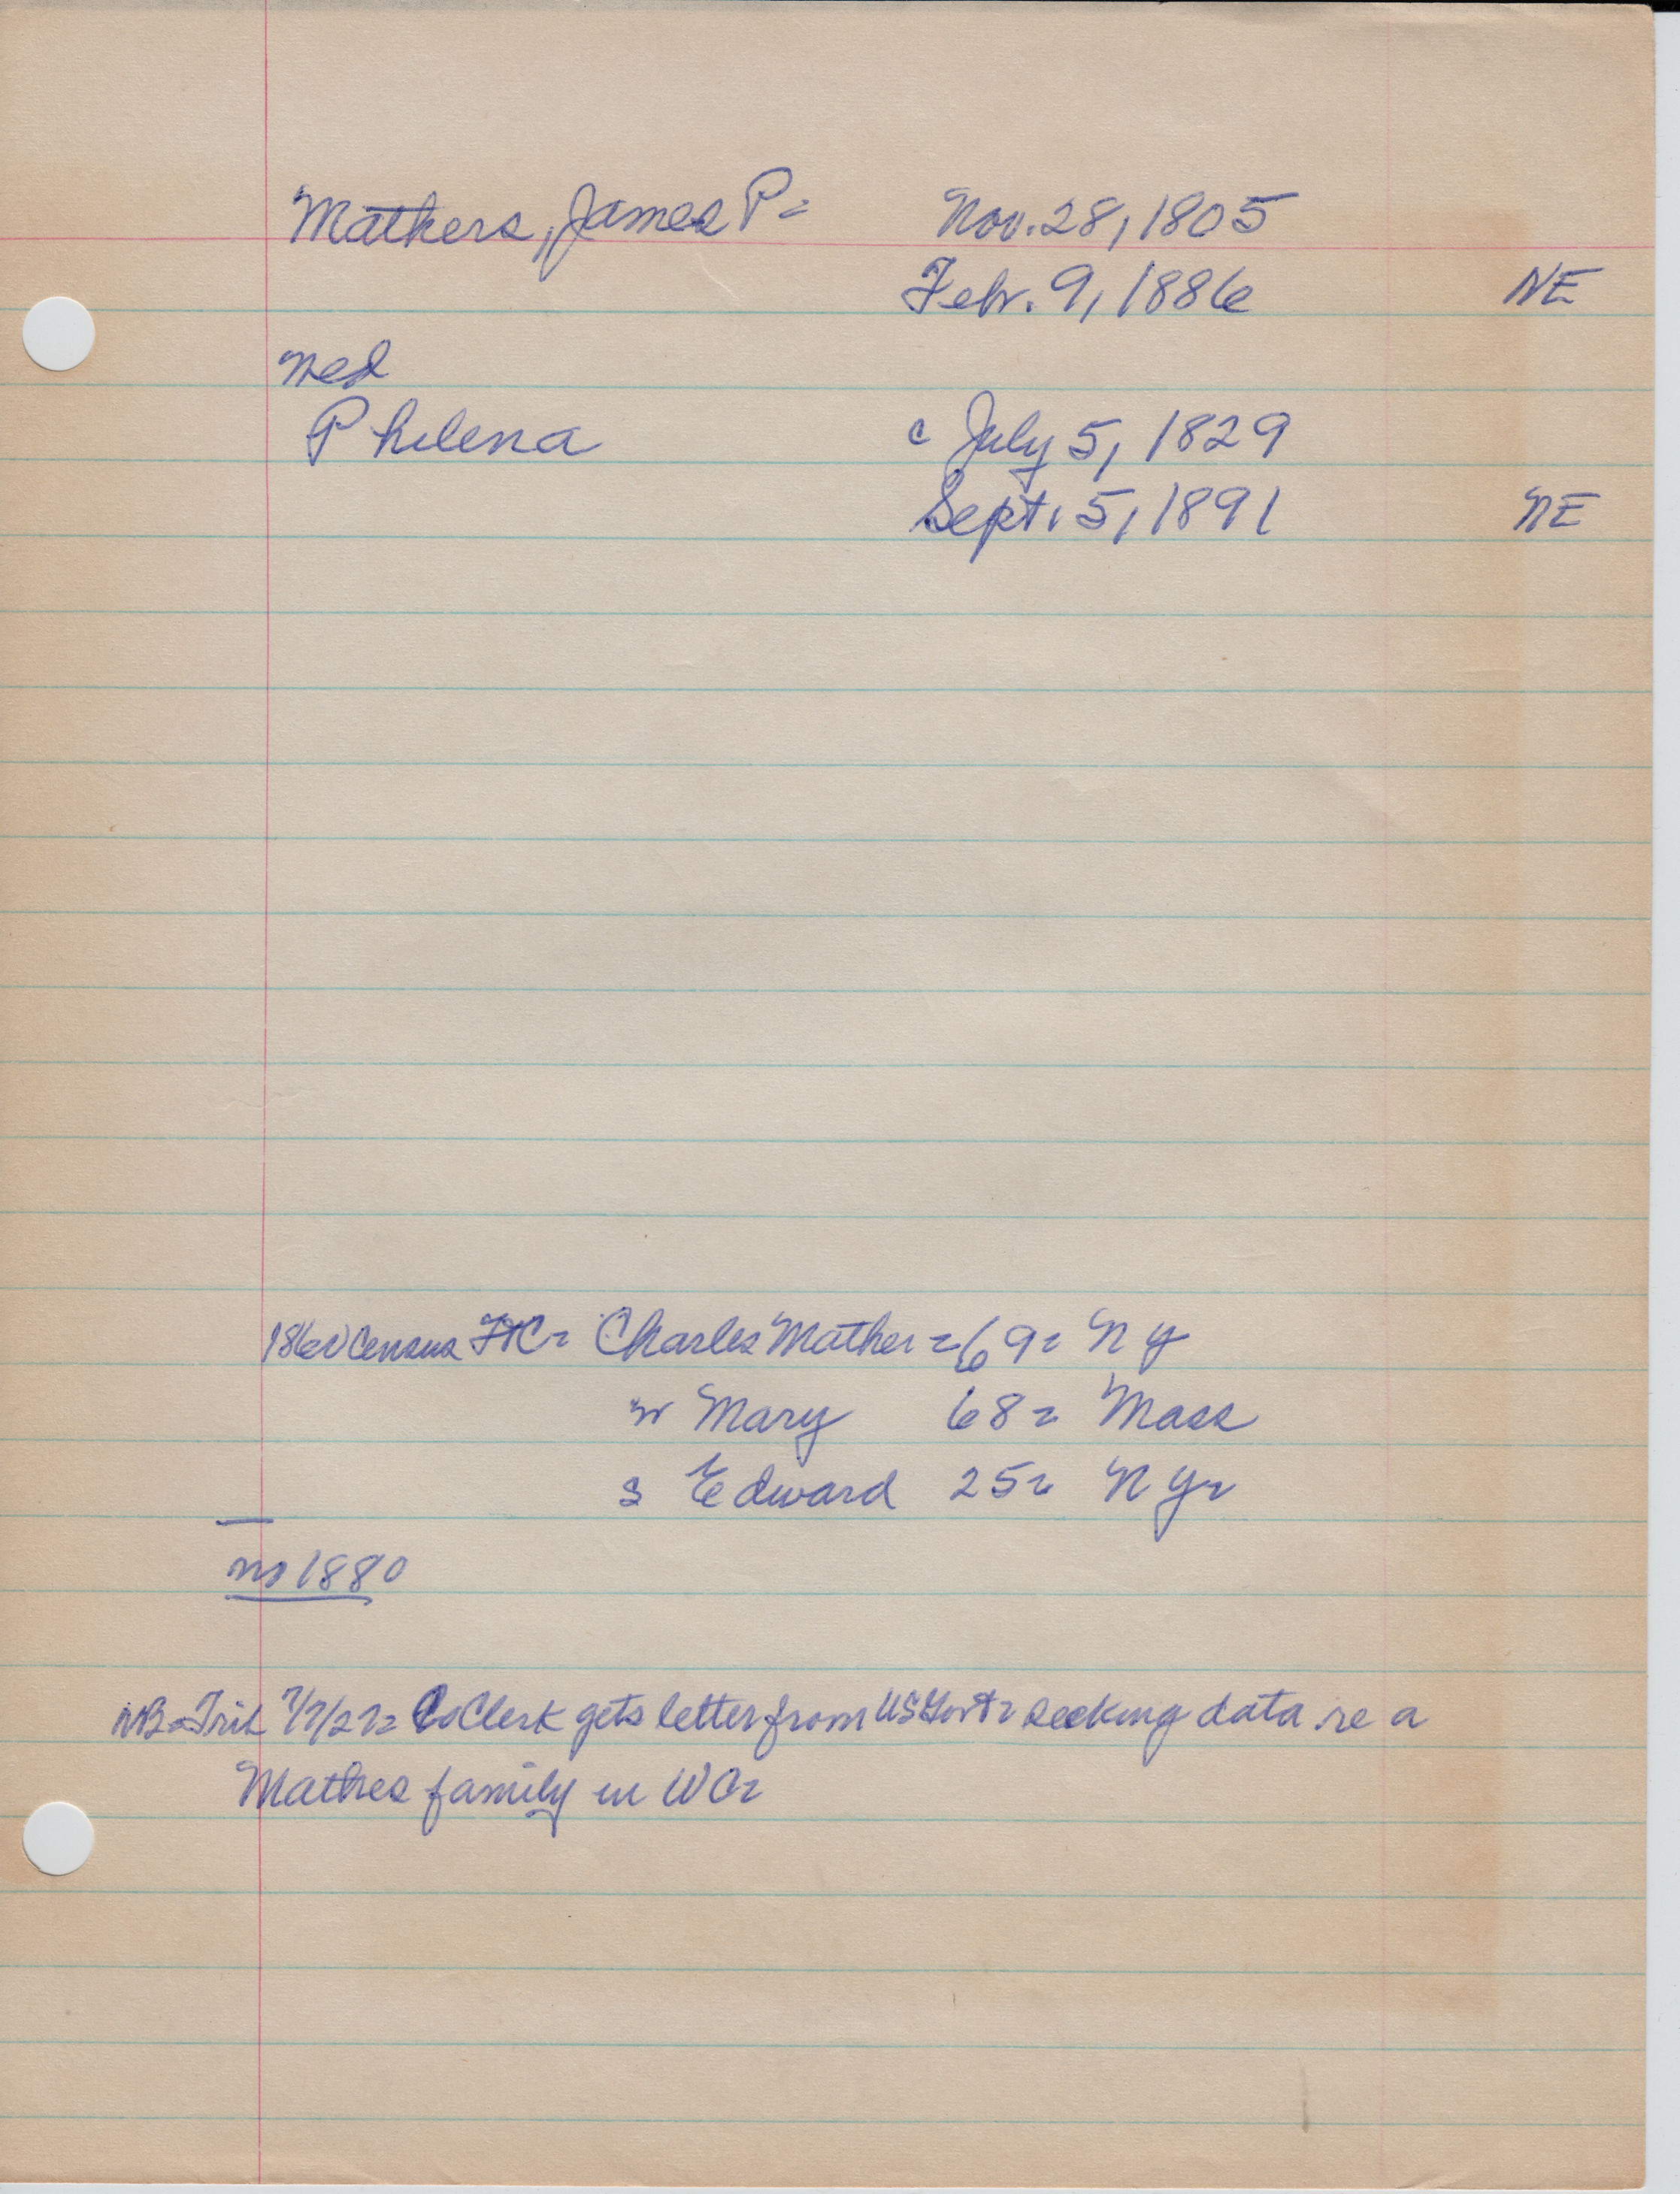 Mathers, James P= Nov. 28, 1805
Febr. 9, 1886 NE
Med
Philena c July 5, 1829
Sept. 5, 1891 NE
1860 Census = Charles Mather = 69= NY
w Mary 68= Mass
s Edward 25= NY=
no 1880
NB=Trib 7/7/27= CoClerk gets letter from US Govt= seeking data re a
Mathes family in WC=